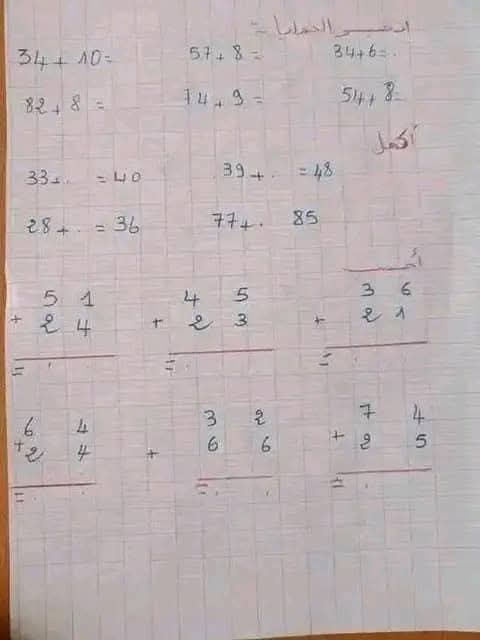 34 + 10 = 57 + 8 = 34 + 6 = .
82 + 8 = 74 + 9 = 54 + 8 =
أكمل
33 + . = 40 39 + . = 48
28 + . = 36 77 + . 85
5 1 4 5 3 6
+ 2 4 + 2 3 + 2 1
= . . = . . = . .
6 4 3 2 7 4
+ 2 4 + 6 6 + 2 5
= . . = . . = .